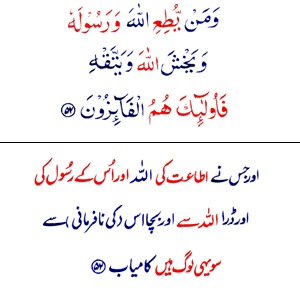 وَمَنْ يُّطِعِ اللّٰهَ وَرَسُوْلَهٗ
وَيَخْشَ اللّٰهَ وَيَتَّقْهِ
فَاُولٰٓئِكَ هُمُ الْفَآئِزُوْنَ ﴿۵۲﴾
اور جس نے اطاعت کی اللہ اور اُس کے رسُول کی
اور ڈرا اللہ سے اور بچا اس (کی نافرمانی) سے
سو یہی لوگ ہیں کامیاب ﴿۵۲﴾